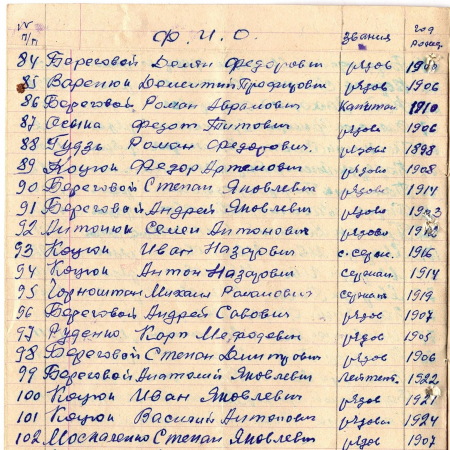 № п/п Ф. И. О. звания год рожд.
84 Береговой Демян Федорович рядов
85 Варенюк Доментий Трофимович рядов 1906
86 Береговой Роман Абрамович капитан 1910
87 Федот Титович рядово 1906
88 Гудзь Роман Федорович. рядово 1898
89 Коцюк Федор Артемович рядово 1908
90 Береговой Степан Яковлевич рядово 1914
91 Береговой Андрей Яковлевич рядово
92 Антонюк Семен Антонович рядово
93 Коцюк Иван Назарович с. серж. 1916
94 Коцюк Антон Назарович сержант 1914
95 Чорноштан Михаил Романович сержант 1919
96 Береговой Андрей Савович рядов 1907
97 Руденко Карп Мефодевич рядов 1905
98 Береговой Степан Дмитрович рядов 1906
99 Береговой Анатолий Яковлевич лейтен. 1922
100 Коцюк Иван Яковлевич рядов 1921
101 Коцюк Василий Антонович рядово 1924
102 Москаленко Степан Яковлевич рядов 1907